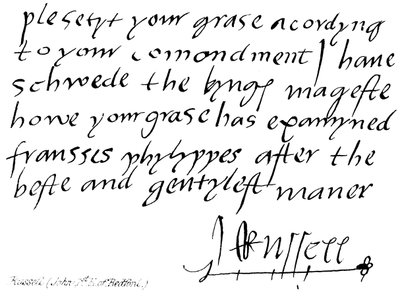 plesetyt your grase acordyng
to your comondment I haue
schwede the kyngs mageste
howe your grase has examyned
fransses phylyppes after the
beste and gentylest maner
J Russell
Russell (John 1st E. of Bedford.)